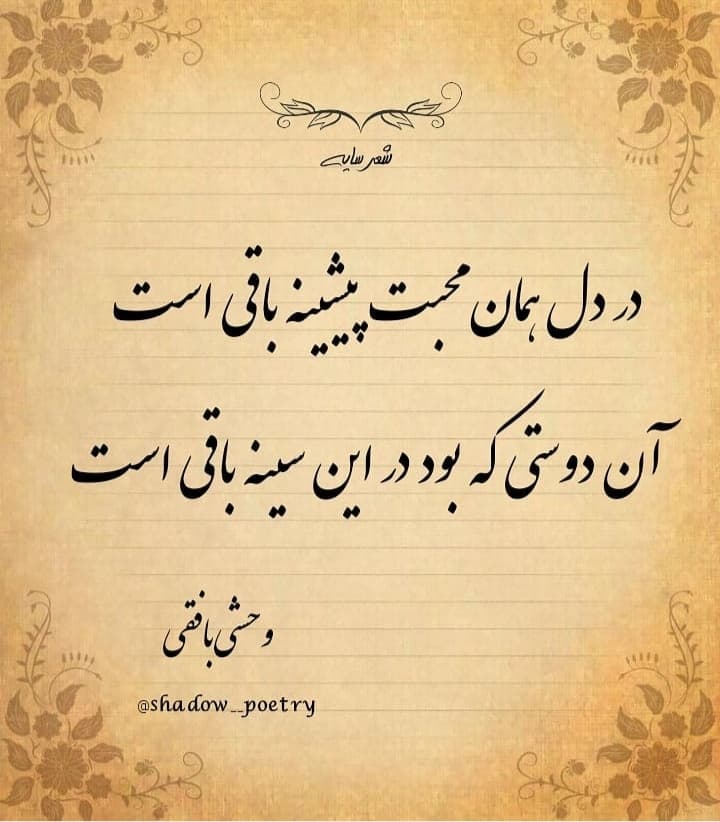 شعر سایه
در دل همان محبت پیشینه باقی است
آن دوستی که بود در این سینه باقی است
وحشی بافقی
@shadow__poetry